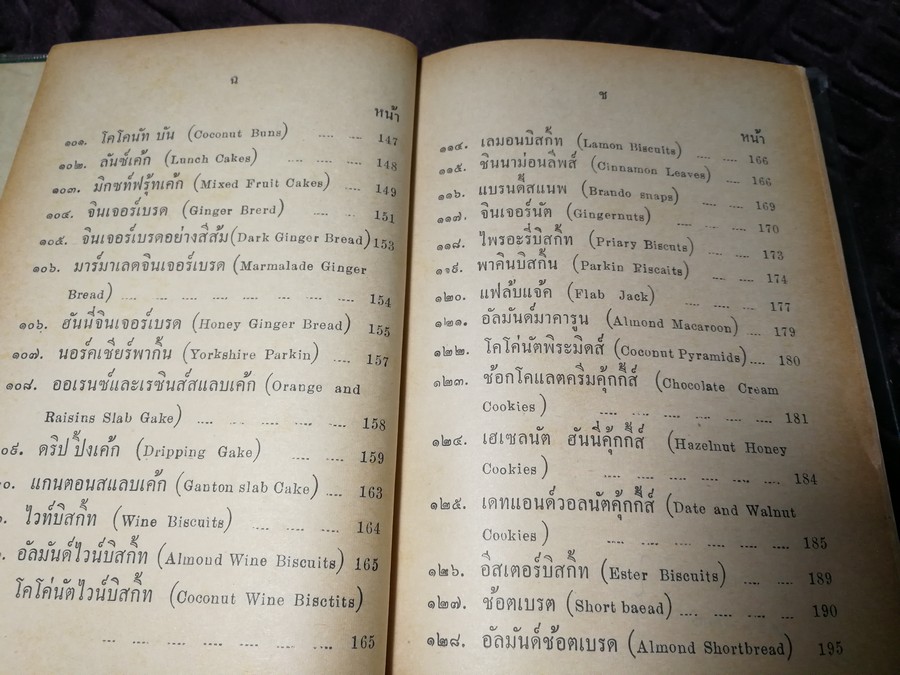 ฉ
หน้า
๑๐๑. โคโคนัท บัน (Coconut Buns) .... .... 147
๑๐๒. ลันซ์เค้ก (Lunch Cakes) .... .... .... 148
๑๐๓. มิกซท์ฟรุ้ทเค้ก (Mixed Fruit Cakes) .... 149
๑๐๔. จินเจอร์เบรด (Ginger Brerd) .... .... 151
๑๐๕. จินเจอร์เบรดอย่างสีส้ม (Dark Ginger Bread) 153
๑๐๖. มาร์มาเลดจินเจอร์เบรด (Marmalade Ginger
Bread) .... .... .... .... .... .... 154
๑๐๖. ฮันนี่จินเจอร์เบรด (Honey Ginger Bread) 155
๑๐๗. นอร์คเชียร์พากิ้น (Yorkshire Parkin) .... 157
๑๐๘. ออเรนซ์และเรซินส์สแลบเค้ก (Orange and
Raisins Slab Gake) .... .... .... .... 158
๑๐๙. ดริป ปิ้งเค้ก (Dripping Gake) .... .... 159
๐. แกนตอนสแลบเค้ก (Ganton slab Cake) .... 163
ไวท์บิสกิ้ท (Wine Biscuits) .... .... .... 164
อัลมันด์ไวน์บิสกิ้ท (Almond Wine Biscuits) 165
โคโค่นัตไวน์บิสกิ้ท (Coconut Wine Bisctits)
.... .... .... .... .... 165
ช
หน้า
๑๑๔. เลมอนบิสกิ้ท (Lamon Biscuits) .... .... 166
๑๑๕. ซินนาม่อนลีพส์ (Cinnamon Leaves) .... 166
๑๑๖. แบรนดี้สแนพ (Brando snaps) .... .... 169
๑๑๗. จินเจอร์นัต (Gingernuts) .... .... 170
๑๑๘. ไพรอะรี่บิสกิ้ท (Priary Biscuts) .... 173
๑๑๙. พาคินบิสกิ้น (Parkin Biscaits) .... 174
๑๒๐. แฟล๊บแจ้ค (Flab Jack) .... .... 177
๑๒๑. อัลมันด์มาคารูน (Almond Macaroon) .... 179
๑๒๒. โคโค่นัตพิระมิดส์ (Coconut Pyramids) .... 180
๑๒๓. ช้อกโคแลตครีมคุ้กกี้ส์ (Chocolate Cream
Cookies) .... .... .... .... 181
๑๒๔. เฮเซลนัต ฮันนี่คุ้กกี้ส์ (Hazelnut Honey
Cookies) .... .... .... .... 184
๑๒๕. เดทแอนด์วอลนัตคุ้กกี้ส์ (Date and Walnut
Cookies) .... .... .... .... 185
๑๒๖. อีสเตอร์บิสกิ้ท (Ester Biscuits) .... .... 189
๑๒๗. ช้อตเบรต (Short baead) .... .... .... 190
๑๒๘. อัลมันด์ช้อตเบรด (Almond Shortbread) 195